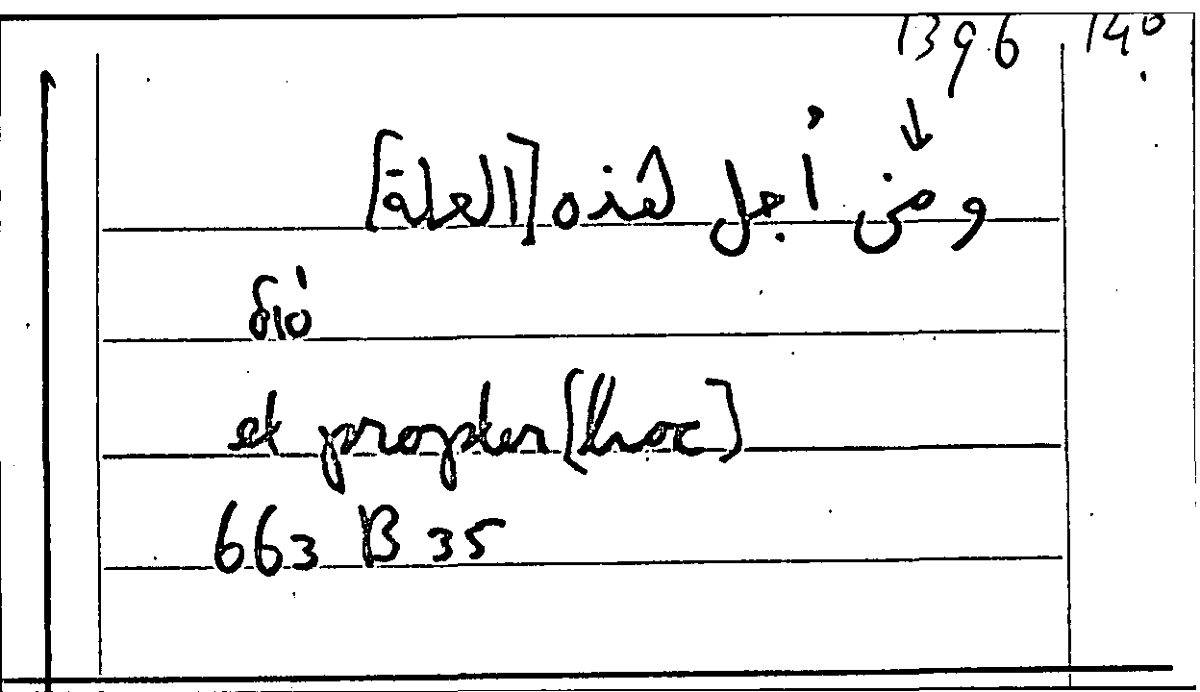 1396 140
↓
ومن أجل هذه [العلة]
διό
et propter [hoc]
663 B 35